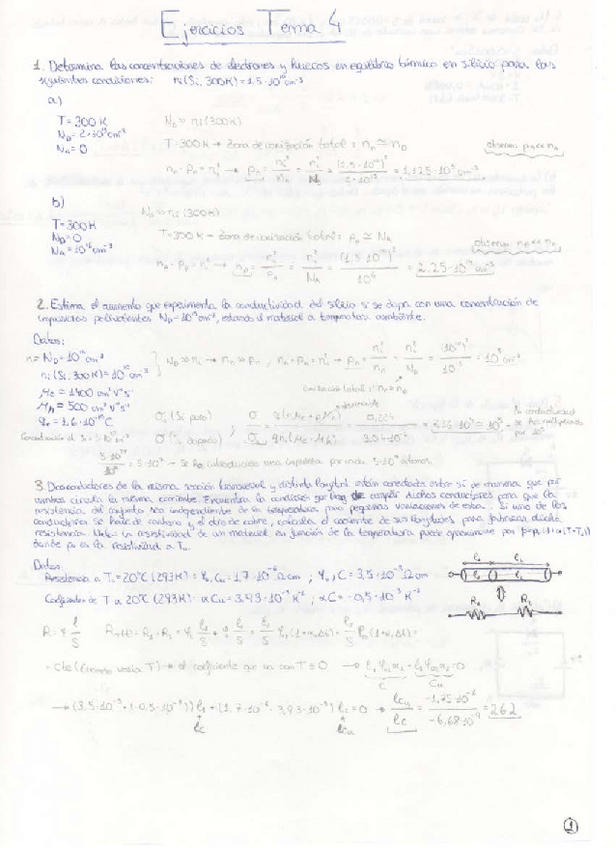 Ejercicios Tema 4
1. Determina las concentraciones de electrones y huecos en equilibrio térmico en silicio para las
siguientes condiciones: ni(Si, 300K) = 1.5·10¹⁰ cm⁻³
a)
T = 300 K
N_D = 2·10¹³ cm⁻³
N_A = 0
N_D >> ni (300K)
T = 300K → Zona de ionización total: n_n ≅ n_D
observar p_n << n_n
n_n · p_n = ni² → p_n = ni²/n_n = ni²/N_D = (1.5·10¹⁰)²/ = 1,125·10⁷ cm⁻³
b)
T = 300K
N_D = 0
N_A = 10¹⁶ cm⁻³
N_A >> ni (300K)
T = 300K → Zona de ionización total: p_p ≅ N_A
observar n_p << p_p
n_p · p_p = ni² → n_p = ni²/p_p = ni²/N_A = (1.5·10¹⁰)²/10¹⁶ = 2.25·10⁴ cm⁻³
2. Estima el aumento que experimenta la conductividad del silicio si se dopa con una concentración de
impurezas N_D = 10¹⁵ cm⁻³, estando el material a temperatura ambiente.
Datos:
n = N_D = 10¹⁵ cm⁻³
ni (Si, 300K) = 10¹⁰ cm⁻³
μe = 1400 cm² V⁻¹ s⁻¹
μh = 500 cm² V⁻¹ s⁻¹
q = 1.6·10⁻¹⁹ C
N_D >> ni → n_n >> p_n, n_n · p_n = ni² → p_n = ni²/n_n = ni²/N_D = (10¹⁰)²/10¹⁵ = 10⁵ cm⁻³
ionización total: n_n = n_D
σi (Si puro)
σ (Si dopado)
0,224
la conductividad
se ha multiplicado
por 10⁵
Concentración del Si = 5·10²² cm⁻³
5·10²²/10¹⁵ = 5·10⁷ → se ha introducido una impureza por cada 5·10⁷ átomos.
3. Dos conductores de la misma sección transversal y distinta longitud están conectados entre sí de manera que por
ambos circula la misma corriente. Encuentra la condición que han de cumplir dichos conductores para que la
resistencia del conjunto sea independiente de la temperatura para pequeñas variaciones de esta. Si uno de los
conductores se hace de carbono y el otro de cobre, calcula el cociente de sus longitudes para fabricar dicha
resistencia. Nota: La resistividad de un material en función de la temperatura puede aproximarse por ρ = ρ₀(1+α(T-T₀))
donde ρ₀ es la resistividad a T₀.
Datos:
Resistencia a T₀ = 20°C (293K) = ρ₀, Cu = 1.7·10⁻⁶ Ω cm ; ρ₀, C = 3,5·10⁻³ Ω cm
Coeficientes de T a 20°C (293K): α Cu = 3.93·10⁻³ K⁻¹ ; α C = -0,5·10⁻³ K⁻¹
R₁ R₂
= cte (Cuando varía T) → el coeficiente que va con T = 0 → ℓ₁ρ₀₁α₁ + ℓ₂ρ₀₂α₂ = 0
C Cu
→ (3,5·10⁻³ · (-0,5·10⁻³)) ℓ₁ + (1,7·10⁻⁶ · 3,93·10⁻³) ℓ₂ = 0 → ℓcu/ℓc = -1,75·10⁻⁶/-6,68·10⁻⁹ = 262
ℓc ℓcu
1